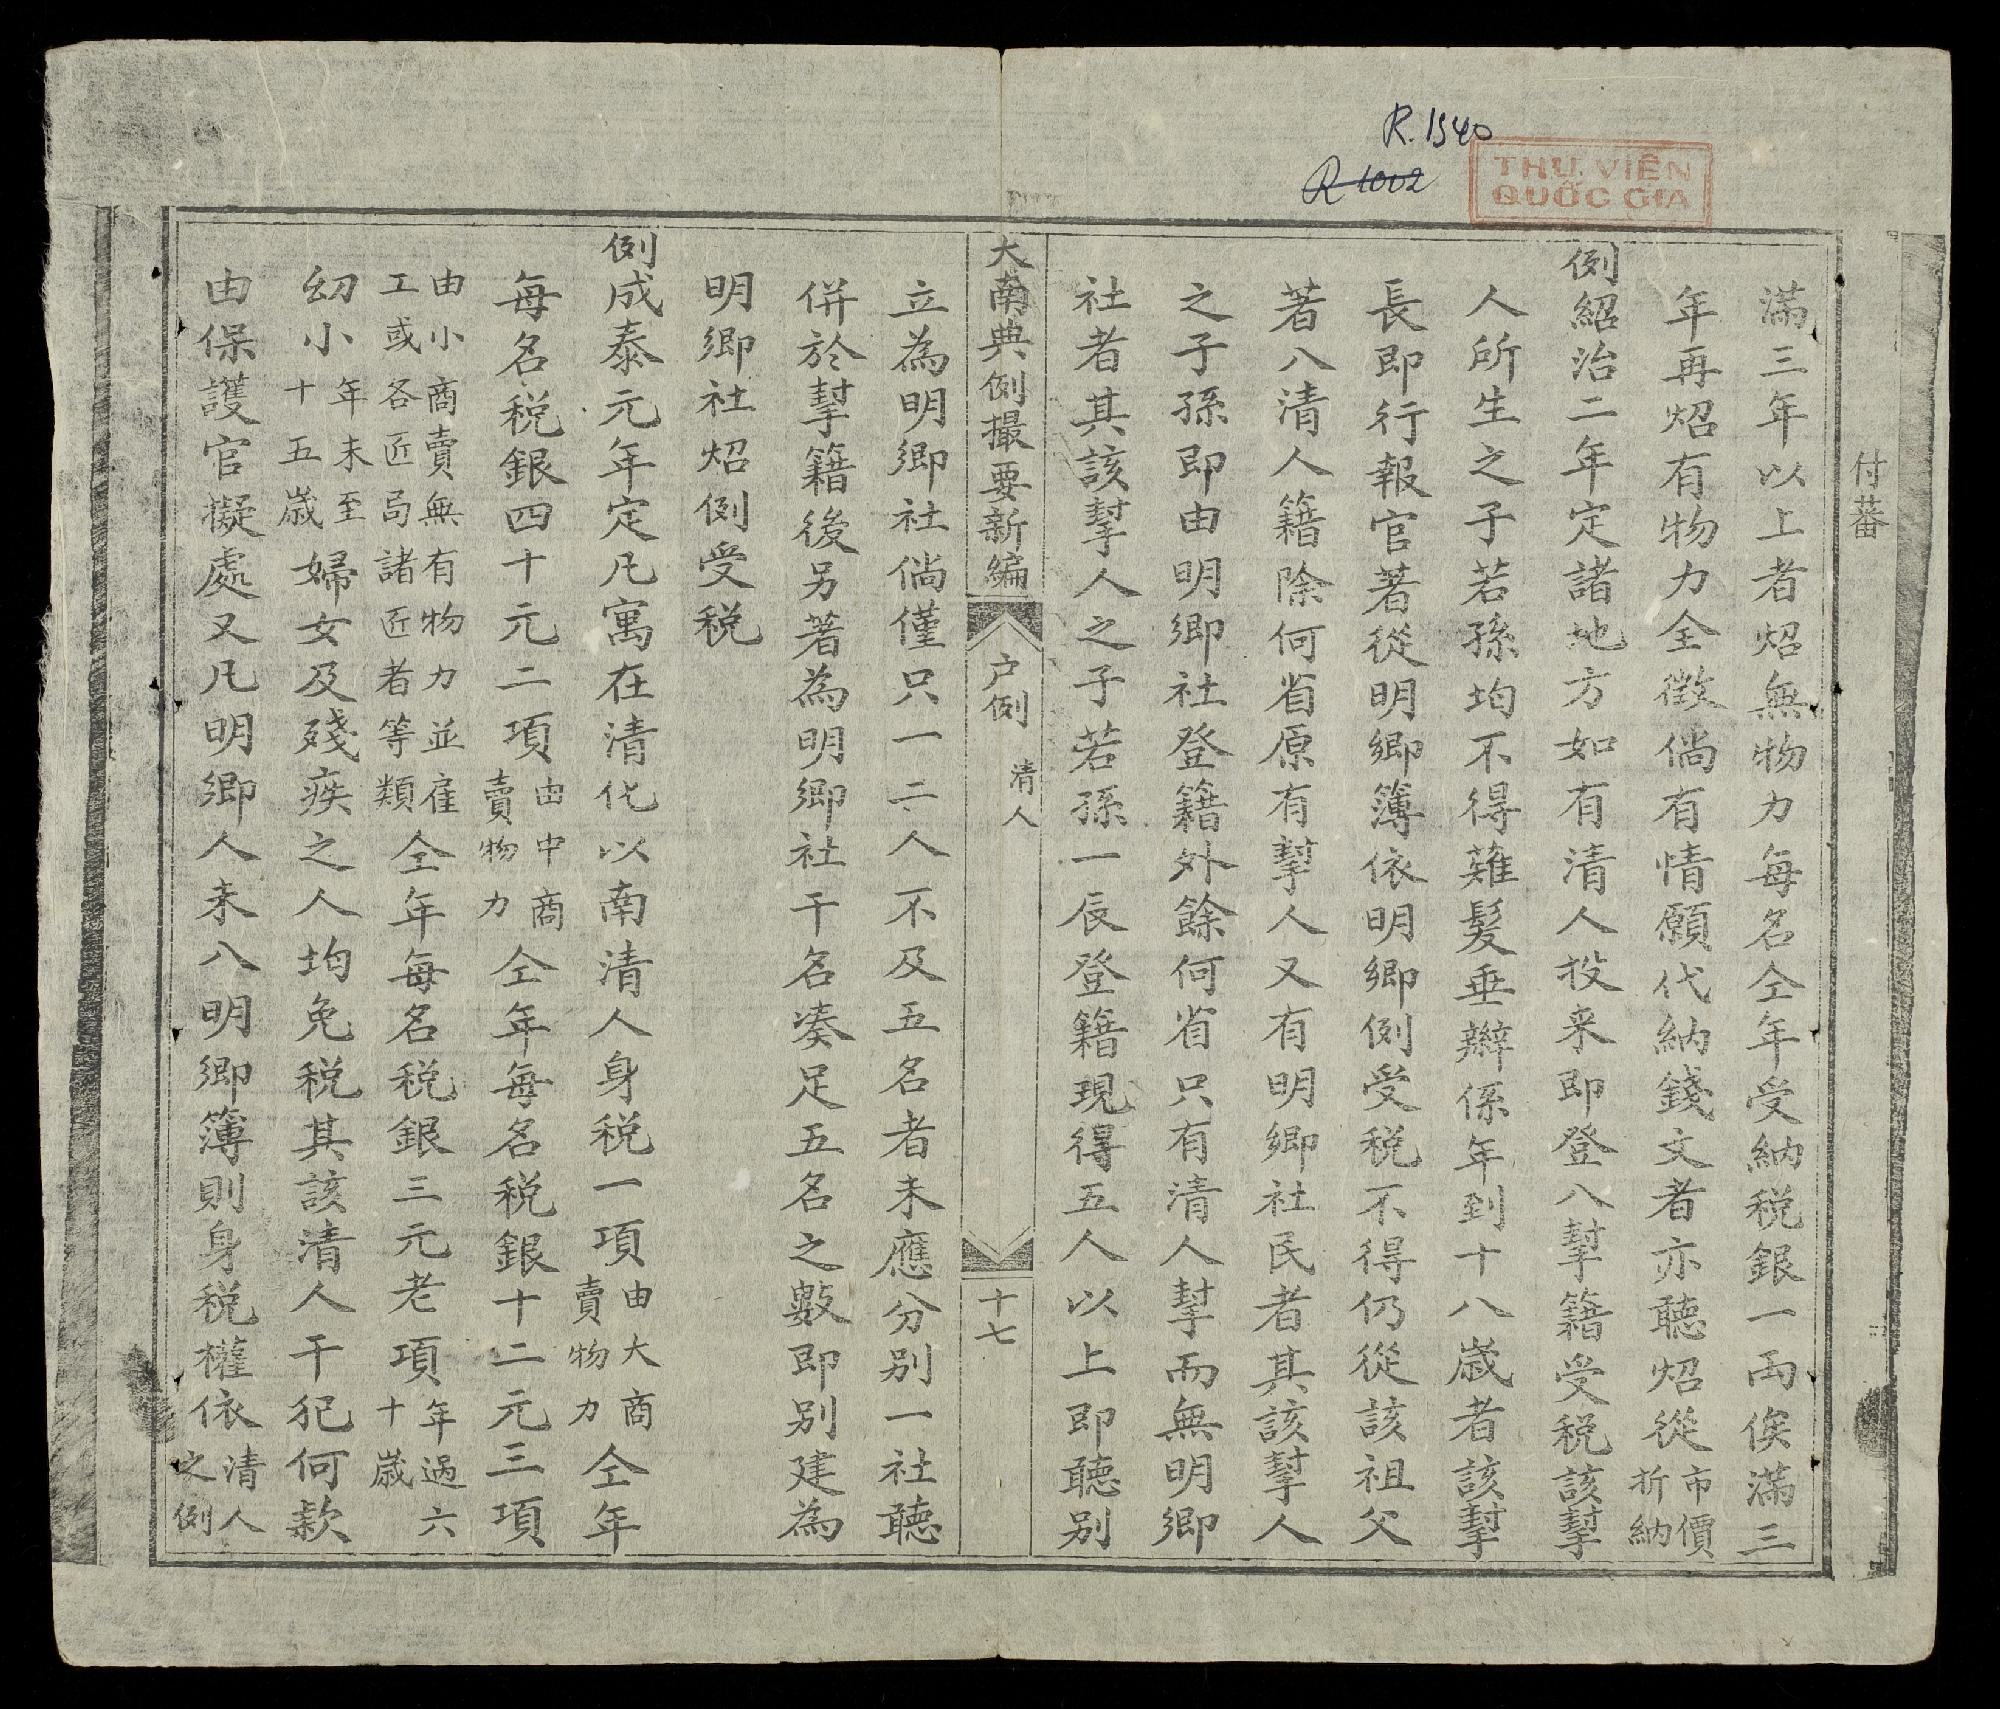 R. 1540
R 1002
THƯ VIÊN
QUỐC GIA
付蕃
滿三年以上者炤無物力每名仝年受納税銀一両俟滿三
年再炤有物力全徴倘有情願代納錢文者亦聴炤從市價折納
例紹治二年定諸地方如有清人投来即登入幇籍受税該幇
人所生之子若孫均不得薙髪垂辮係年到十八歳者該幇
長即行報官著從明鄉簿依明鄉例受税不得仍從該祖父
著入清人籍除何省原有幇人又有明鄉社民者其該幇人
之子孫即由明鄉社登籍外餘何省只有清人幇而無明鄉
社者其該幇人之子若孫一辰登籍現得五人以上即聴別
大南典例撮要新編
户例
清人
十七
立為明鄉社倘僅只一二人不及五名者未應分別一社聴
併於幇籍後另著為明鄉社干名湊足五名之數即別建為
明鄉社炤例受税
例成泰元年定凡寓在清化以南清人身税一項由大商賣物力仝年
每名税銀四十元二項由中商賣物力仝年每名税銀十二元三項
由小商賣無有物力並雇工或各匠局諸匠者等類仝年每名税銀三元老項年過六十歳
幼小年未至十五歳婦女及殘疾之人均免税其該清人干犯何款
由保護官擬處又凡明鄉人未入明鄉簿則身税權依清人之例